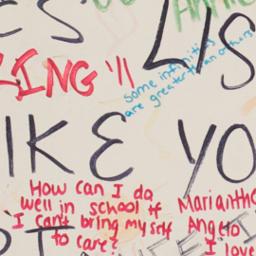 ES
LIS
LING
some infinities
are greater than others
IKE YO
How can I do
well in school if
I can't bring myself
to care?
Marianthe
Angelo
I love